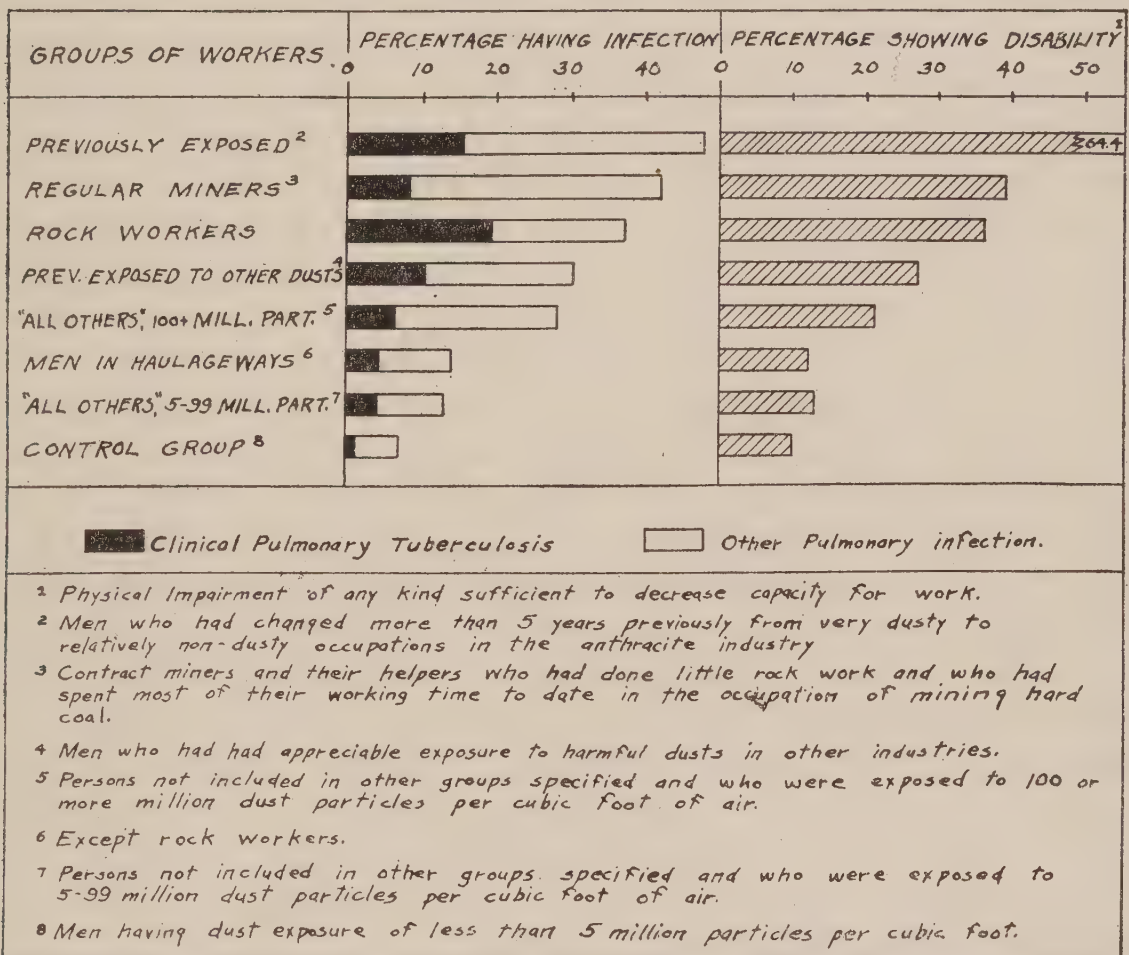 GROUPS OF WORKERS.
PERCENTAGE HAVING INFECTION
PERCENTAGE SHOWING DISABILITY¹
0 10 20 30 40
0 10 20 30 40 50
PREVIOUSLY EXPOSED ²
64.4
REGULAR MINERS ³
ROCK WORKERS
PREV. EXPOSED TO OTHER DUSTS ⁴
"ALL OTHERS", 100+ MILL. PART. ⁵
MEN IN HAULAGEWAYS ⁶
"ALL OTHERS", 5-99 MILL. PART. ⁷
CONTROL GROUP ⁸
Clinical Pulmonary Tuberculosis
Other Pulmonary infection.
¹ Physical Impairment of any kind sufficient to decrease capacity for work.
² Men who had changed more than 5 years previously from very dusty to
relatively non-dusty occupations in the anthracite industry
³ Contract miners and their helpers who had done little rock work and who had
spent most of their working time to date in the occupation of mining hard
coal.
⁴ Men who had had appreciable exposure to harmful dusts in other industries.
⁵ Persons not included in other groups specified and who were exposed to 100 or
more million dust particles per cubic foot of air.
⁶ Except rock workers.
⁷ Persons not included in other groups specified and who were exposed to
5-99 million dust particles per cubic foot of air.
⁸ Men having dust exposure of less than 5 million particles per cubic foot.